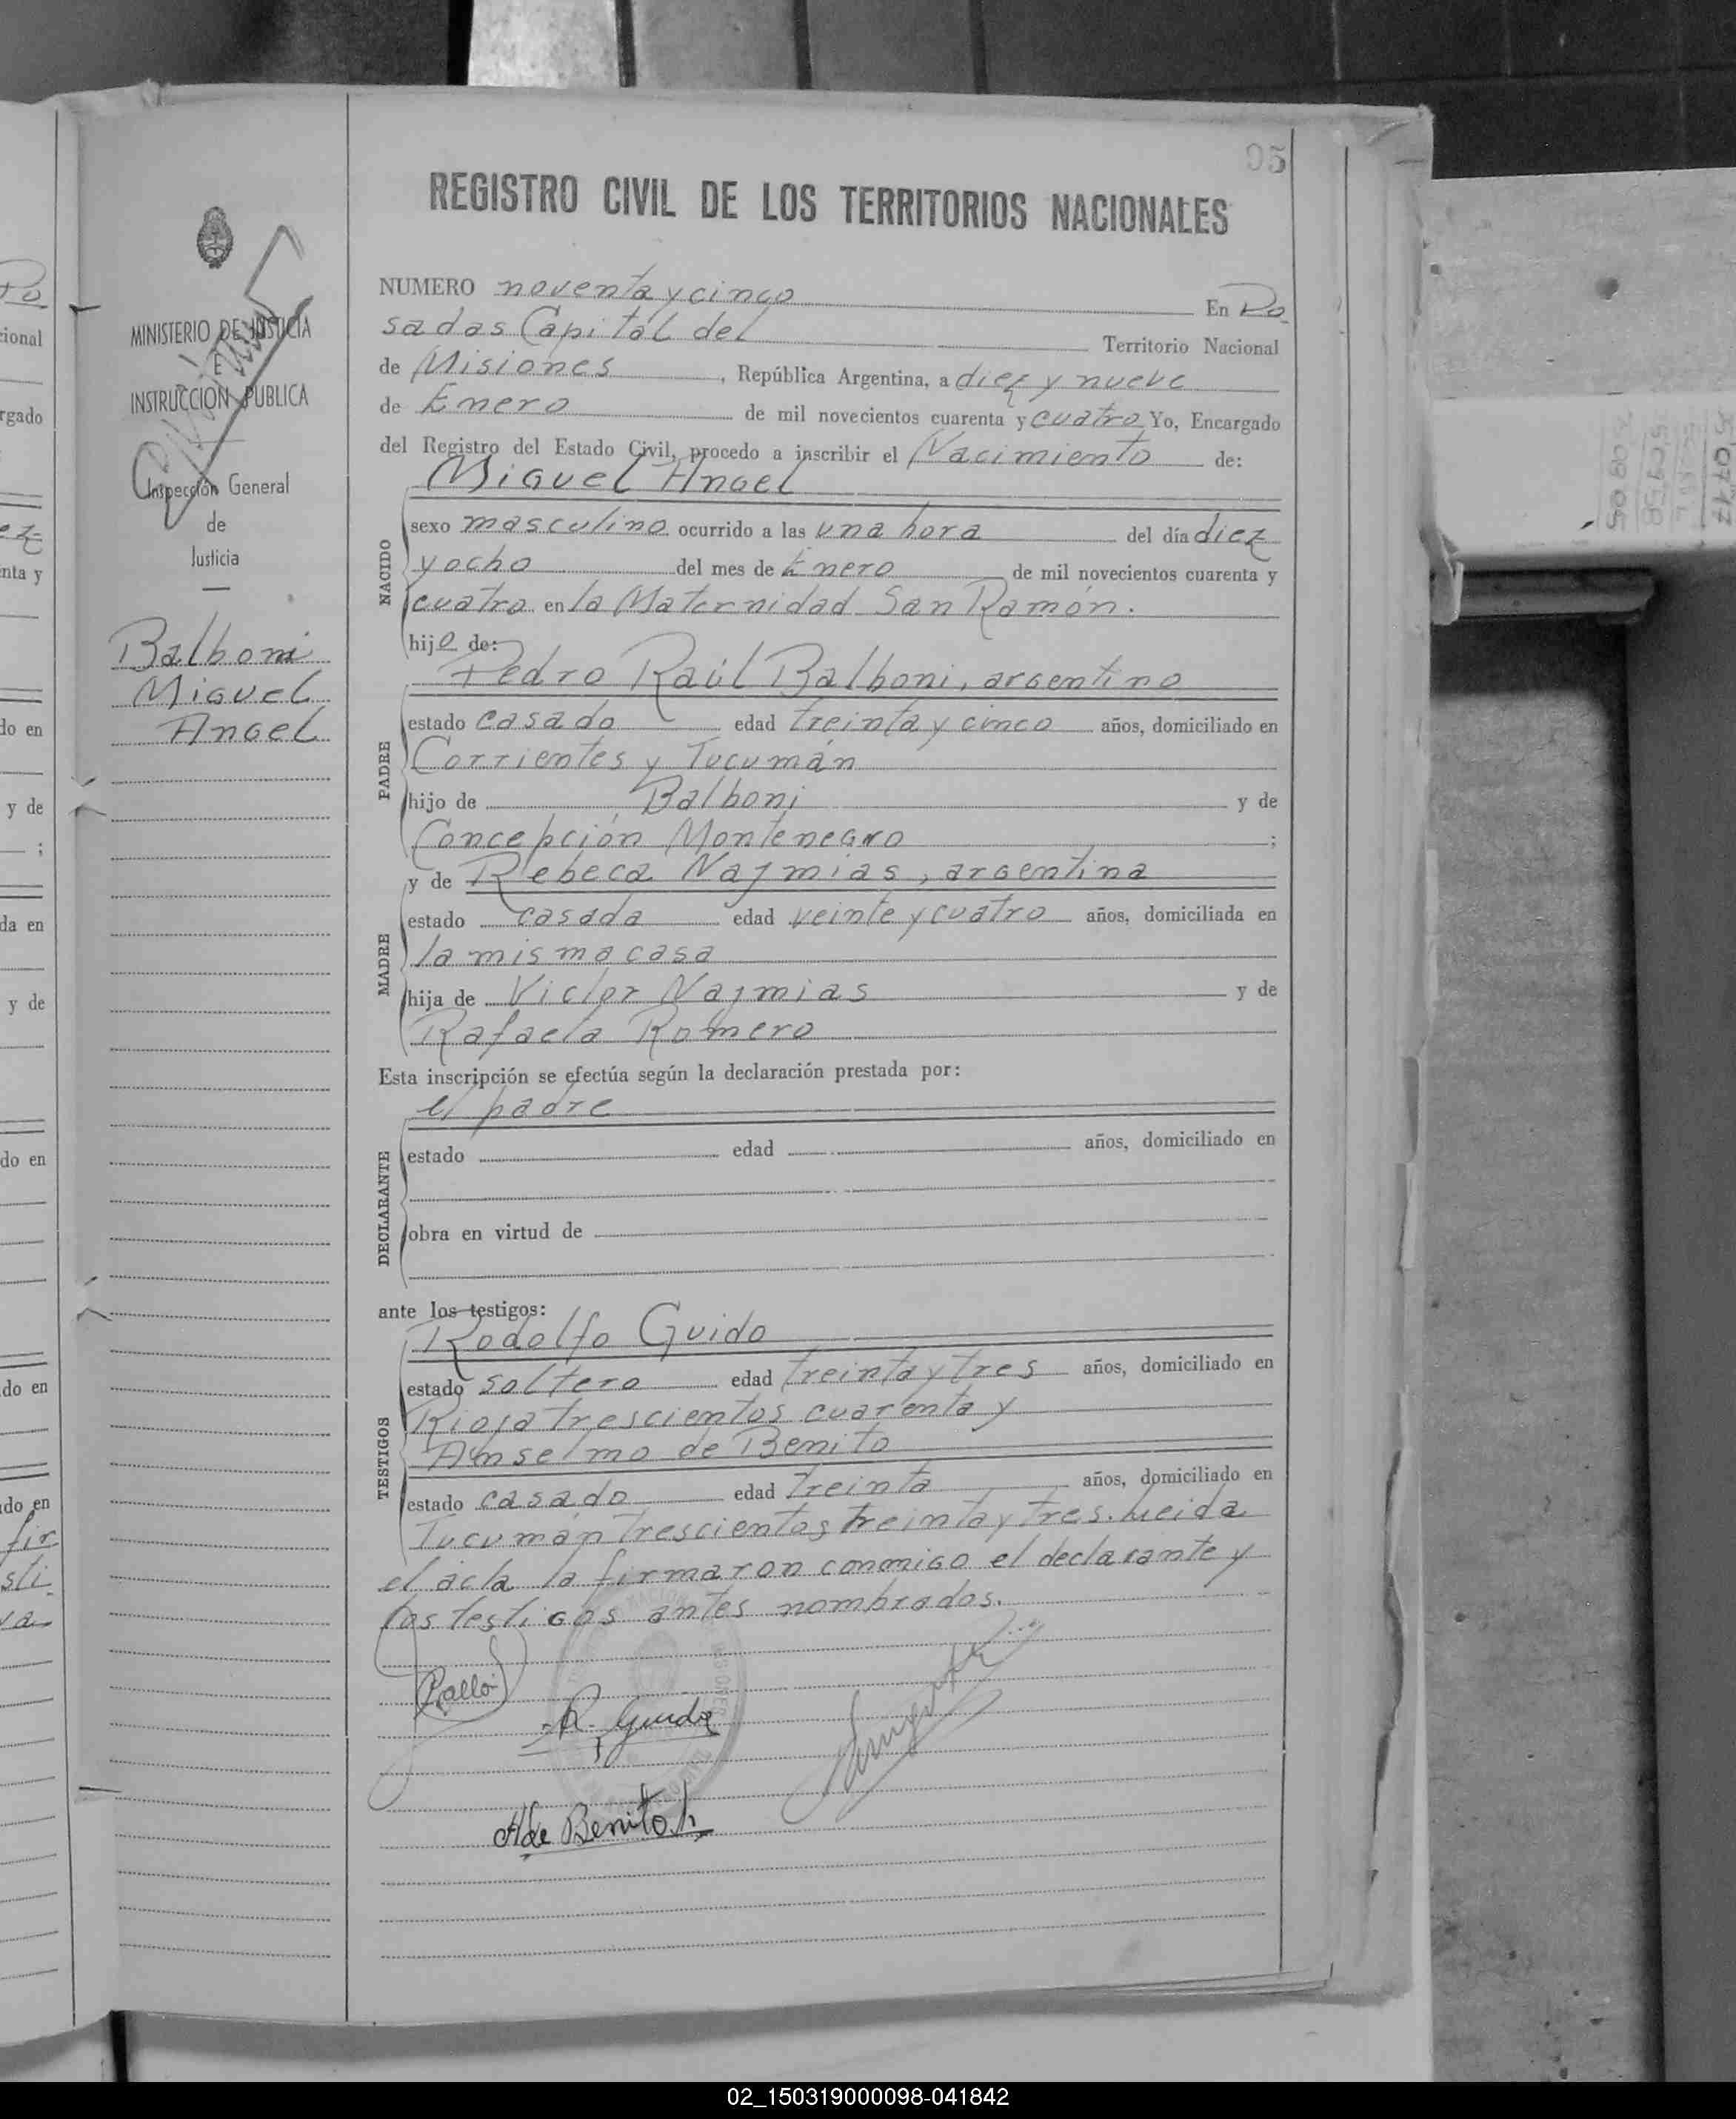 95
REGISTRO CIVIL DE LOS TERRITORIOS NACIONALES
MINISTERIO DE JUSTICIA
E
INSTRUCCION PUBLICA
Inspección General
de
Justicia
Balboni
Miguel
Angel
NUMERO noventa y cinco En Po
sadas Capital del Territorio Nacional
de Misiones, República Argentina, a diez y nueve
de Enero de mil novecientos cuarenta y cuatro Yo, Encargado
del Registro del Estado Civil, procedo a inscribir el Nacimiento de:
NACIDO
Miguel Angel
sexo masculino ocurrido a las una hora del día diez
y ocho del mes de Enero de mil novecientos cuarenta y
cuatro en la Maternidad San Ramón.
hijo de:
PADRE
Pedro Raúl Balboni, argentino
estado casado edad treinta y cinco años, domiciliado en
Corrientes y Tucumán
hijo de Balboni y de
Concepción Montenegro ;
MADRE
y de Rebeca Najmias, argentina
estado casada edad veinte y cuatro años, domiciliada en
la misma casa
hija de Victor Najmias y de
Rafaela Romero
Esta inscripción se efectúa según la declaración prestada por:
DECLARANTE
el padre
estado edad años, domiciliado en
obra en virtud de
ante los testigos:
TESTIGOS
Rodolfo Guido
estado soltero edad treinta y tres años, domiciliado en
Rioja trescientos cuarenta y
Anselmo de Benito
estado casado edad treinta años, domiciliado en
Tucumán trescientos treinta y tres. Leida
el acta la firmaron conmigo el declarante y
los testigos antes nombrados.
R. Guido
A de Benito h
02_150319000098-041842